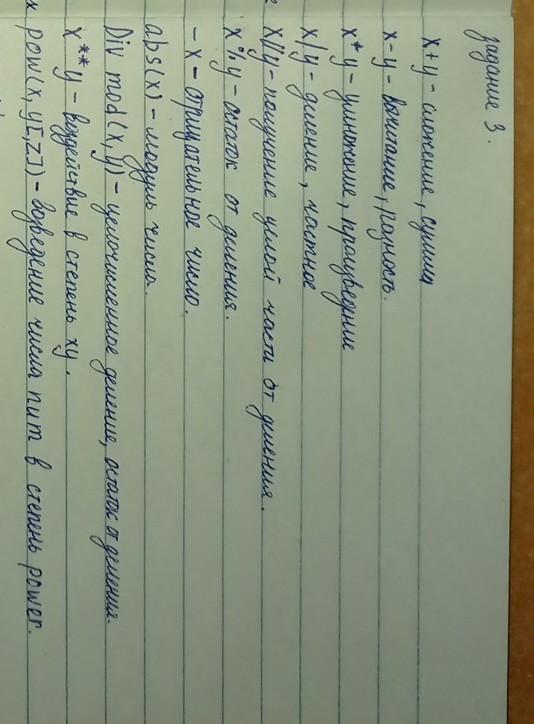 задание 3.
x+y - сложение, сумма
x-y - вычитание, разность.
x*y - умножение, произведние
x/y - деление, частное
x//y - получение целой части от деления.
x%y - остаток от деления.
-x - отрицательное число.
abs(x) - модуль числа.
Div mod(x, y) - целочисленное деление, остаток от деления.
x**y - воздействие в степень xy.
pow(x, y[,z]) - возведение числа пит в степень power.